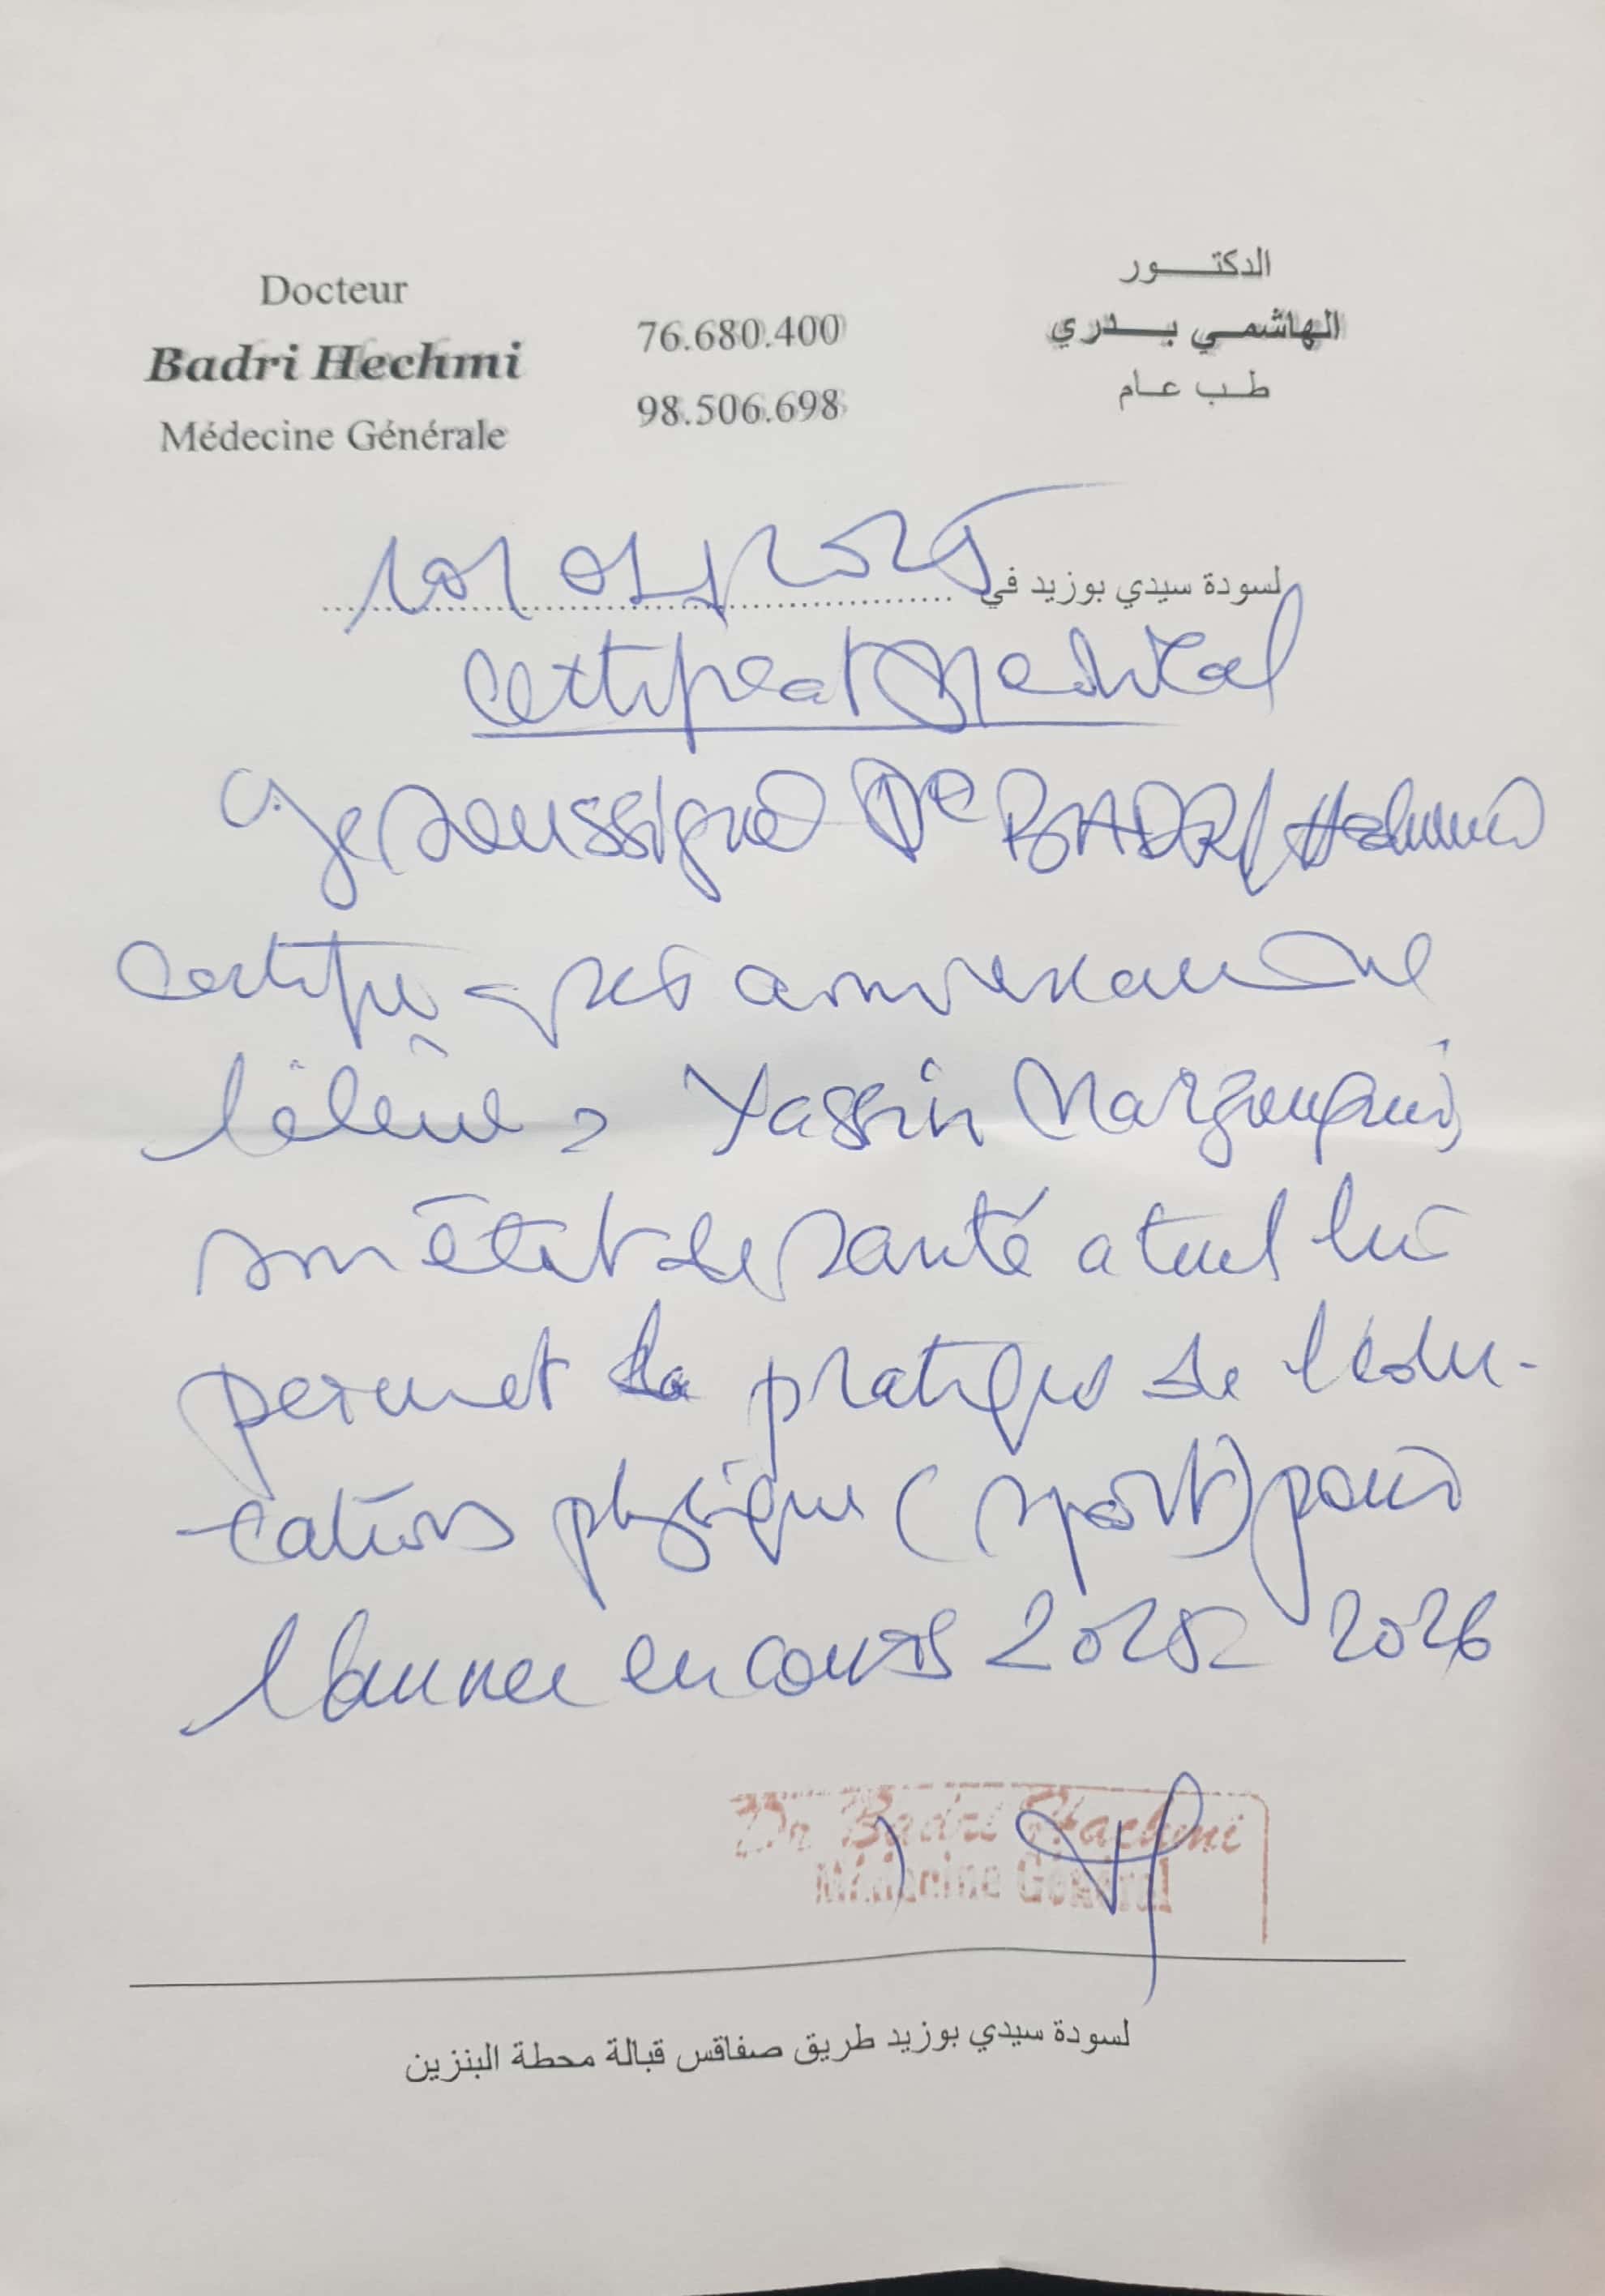 Docteur
Badri Hechmi
Médecine Générale
76.680.400
98.506.698
الدكتــــور
الهاشمـي بــدري
طـب عـام
لسودة سيدي بوزيد في
Certificat Medical
Je soussigné Dr BADRI Hechmi
certifie avoir examiné
l'élève : Yassin
son état de santé atuel lui
permet la pratique de l'édu-
cation physique (sport) pour
l'année en cours 2025 2026
Dr Badri Hachmi
Médecine Général
لسودة سيدي بوزيد طريق صفاقس قبالة محطة البنزين